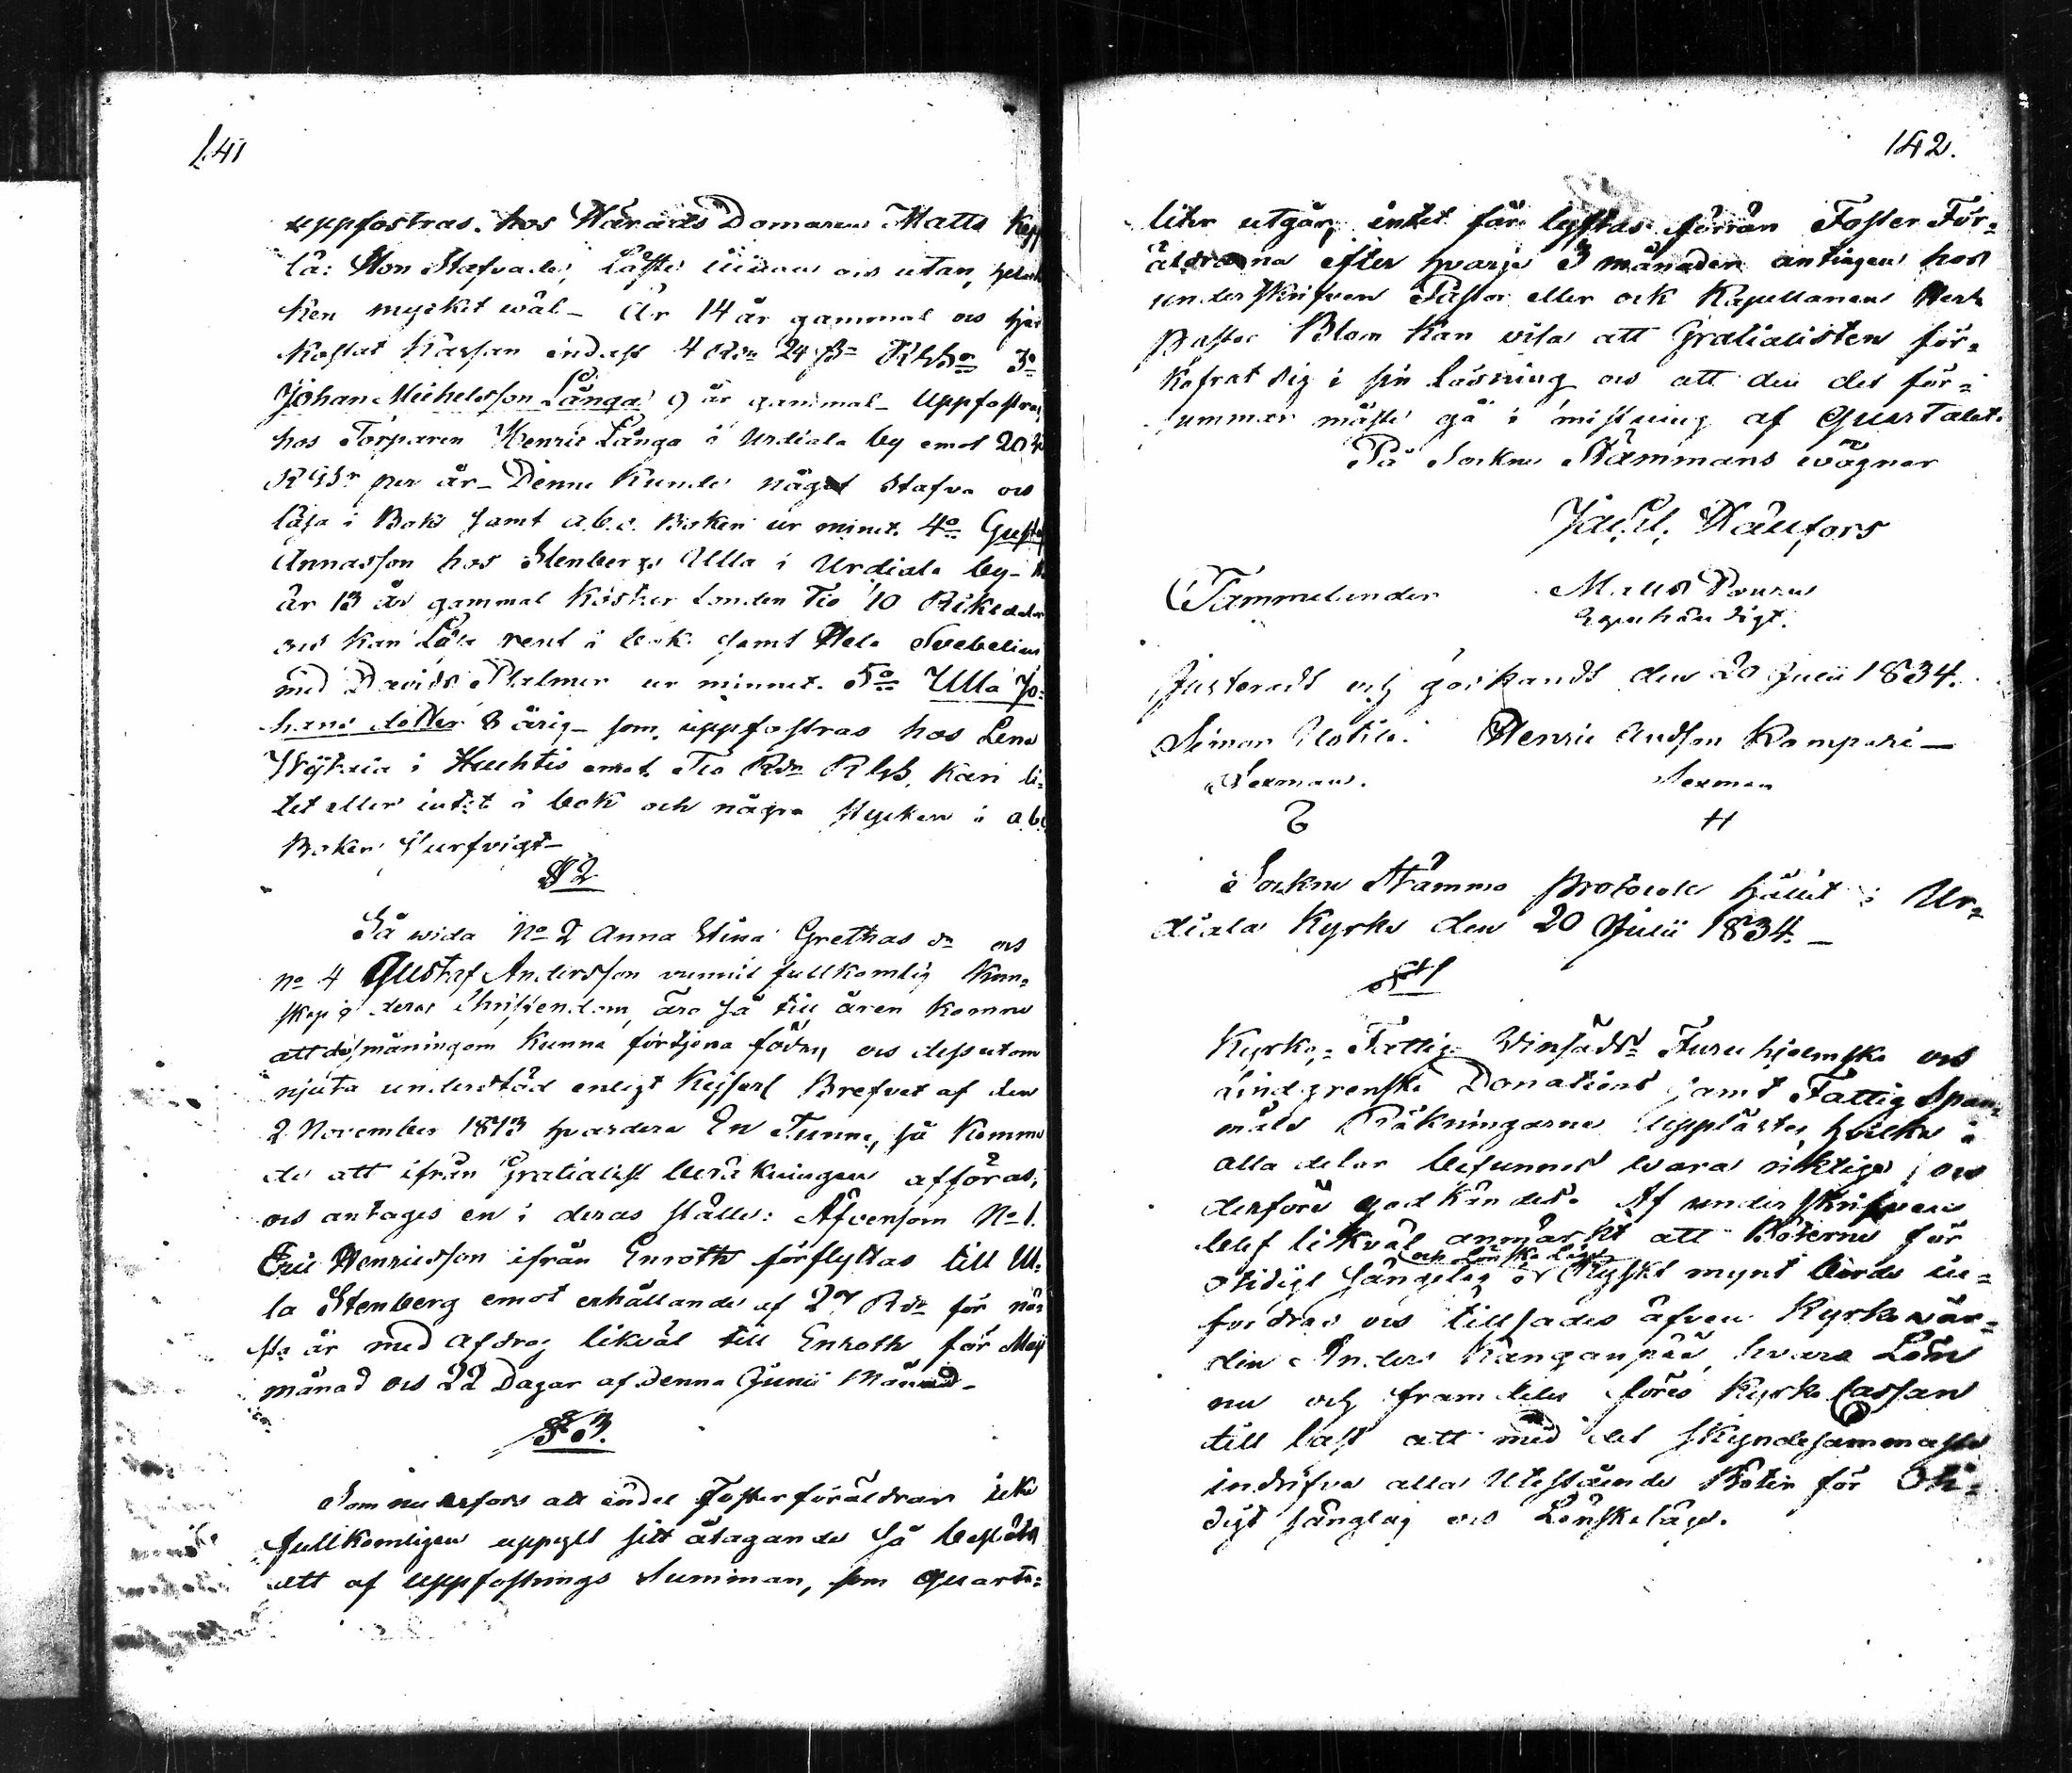 141
uppfostras hos Härads Domaren Matts
lä: Hon Stafvade, Läste innan och utan,
ken mycket wäl - Är 14 år gammal och
Kostat Kassan endast 4 Rdr 24 ß RGSr 3o
Johan Michelsson Långa 9 år gammal - Uppfostras
hos Torparen Henric Långa i Urdiala by emot 20
RGSr per år - Denne Kunde något Stafva och
läsa i Bok samt a.b.c. Boken ur minnet. 4o Gustaf
Annasson hos Stenbergs Ulla i Urdiala by -
är 13 år gammal Kåstar Tio 10 Riksdaler
och kan Läsa rent i bok samt Hela Svebelius
med Davids Psalmer ur minnet. 5o Ulla Jo=
hans dotter 8 årig - som uppfostras hos Lena
i Huhtis emot Tio Rdr RGS, Kan li=
tet eller intet i bok och några stycken i abc
Boken
§ 2
Så wida No 2 Anna Stina Grethas dr och
No 4 Gustaf Andersson vunnit fullkomlig Kun=
skap i deras Christendom, äro så till åren komne
att de måningom Kunna förtjena födan och dessutom
njuta understöd enligt Kejserl Brefvet af den
2 November 1813 hvardera En Tunna, så komma
de att ifrån Gratialist beräkningen afföras,
och antages en i deras ställe: Äfvensom No 1.
Eric Henricsson ifrån Enroth förflyttas till Ul=
la Stenberg emot erhållande af 27 Rdr för nä=
sta år med afdrag likväl till Enroth för Maji
månad och 22 Dagar af denna Junii Månad -
§ 3.
Som nu att endel Fosterföräldrar icke
fullkomligen uppfylt sitt åtagande så beslöts
att af Uppfostrings Summan, som Quarta=
142.
liter utgår, intet får lyftas förrän Foster För=
äldrarna efter hvarje 3 månader antingen hos
underskrifven Pastor eller ock Kapellanen Herr
Pastor Blom kan visa att Gratialisten för=
kofrat sig i sin Läsning och att den det för=
summar måste gå i mistning af Quartalet.
På Sockne Stämmans wägnar
Tammelander
Egenhändigt.
Justeradt och godkändt den 20 Julii 1834.
Simon Henric Andsson Kamppari -
Sexman. Sexman
H
Sockne Stämmo Protocoll hållit i Ur=
diala Kyrka den 20 Julii 1834. -
§ 1
Kyrko= Fattig= Winsäds= Furuhjelmska och
Lindgrenska Donations samt Fattig Span=
måls Räkningarne Upplästes, hvilka i
alla delar befunnos wara riktiga, och
derföre godkändes. Af underskrifven
blef likväl anmärkt att Böterne för
och Lönskaläge
otidigt sängelag i Ryskt mynt borde in=
fordras och tillsades äfven Kyrkowär=
den Anders Kanganpää, hvars Lön
nu och framdeles föres Kyrko Cassan
till last att med det skyndesammaste
indrifva alla Utestående Böter för Oti=
digt sänglag och Lönskaläge.